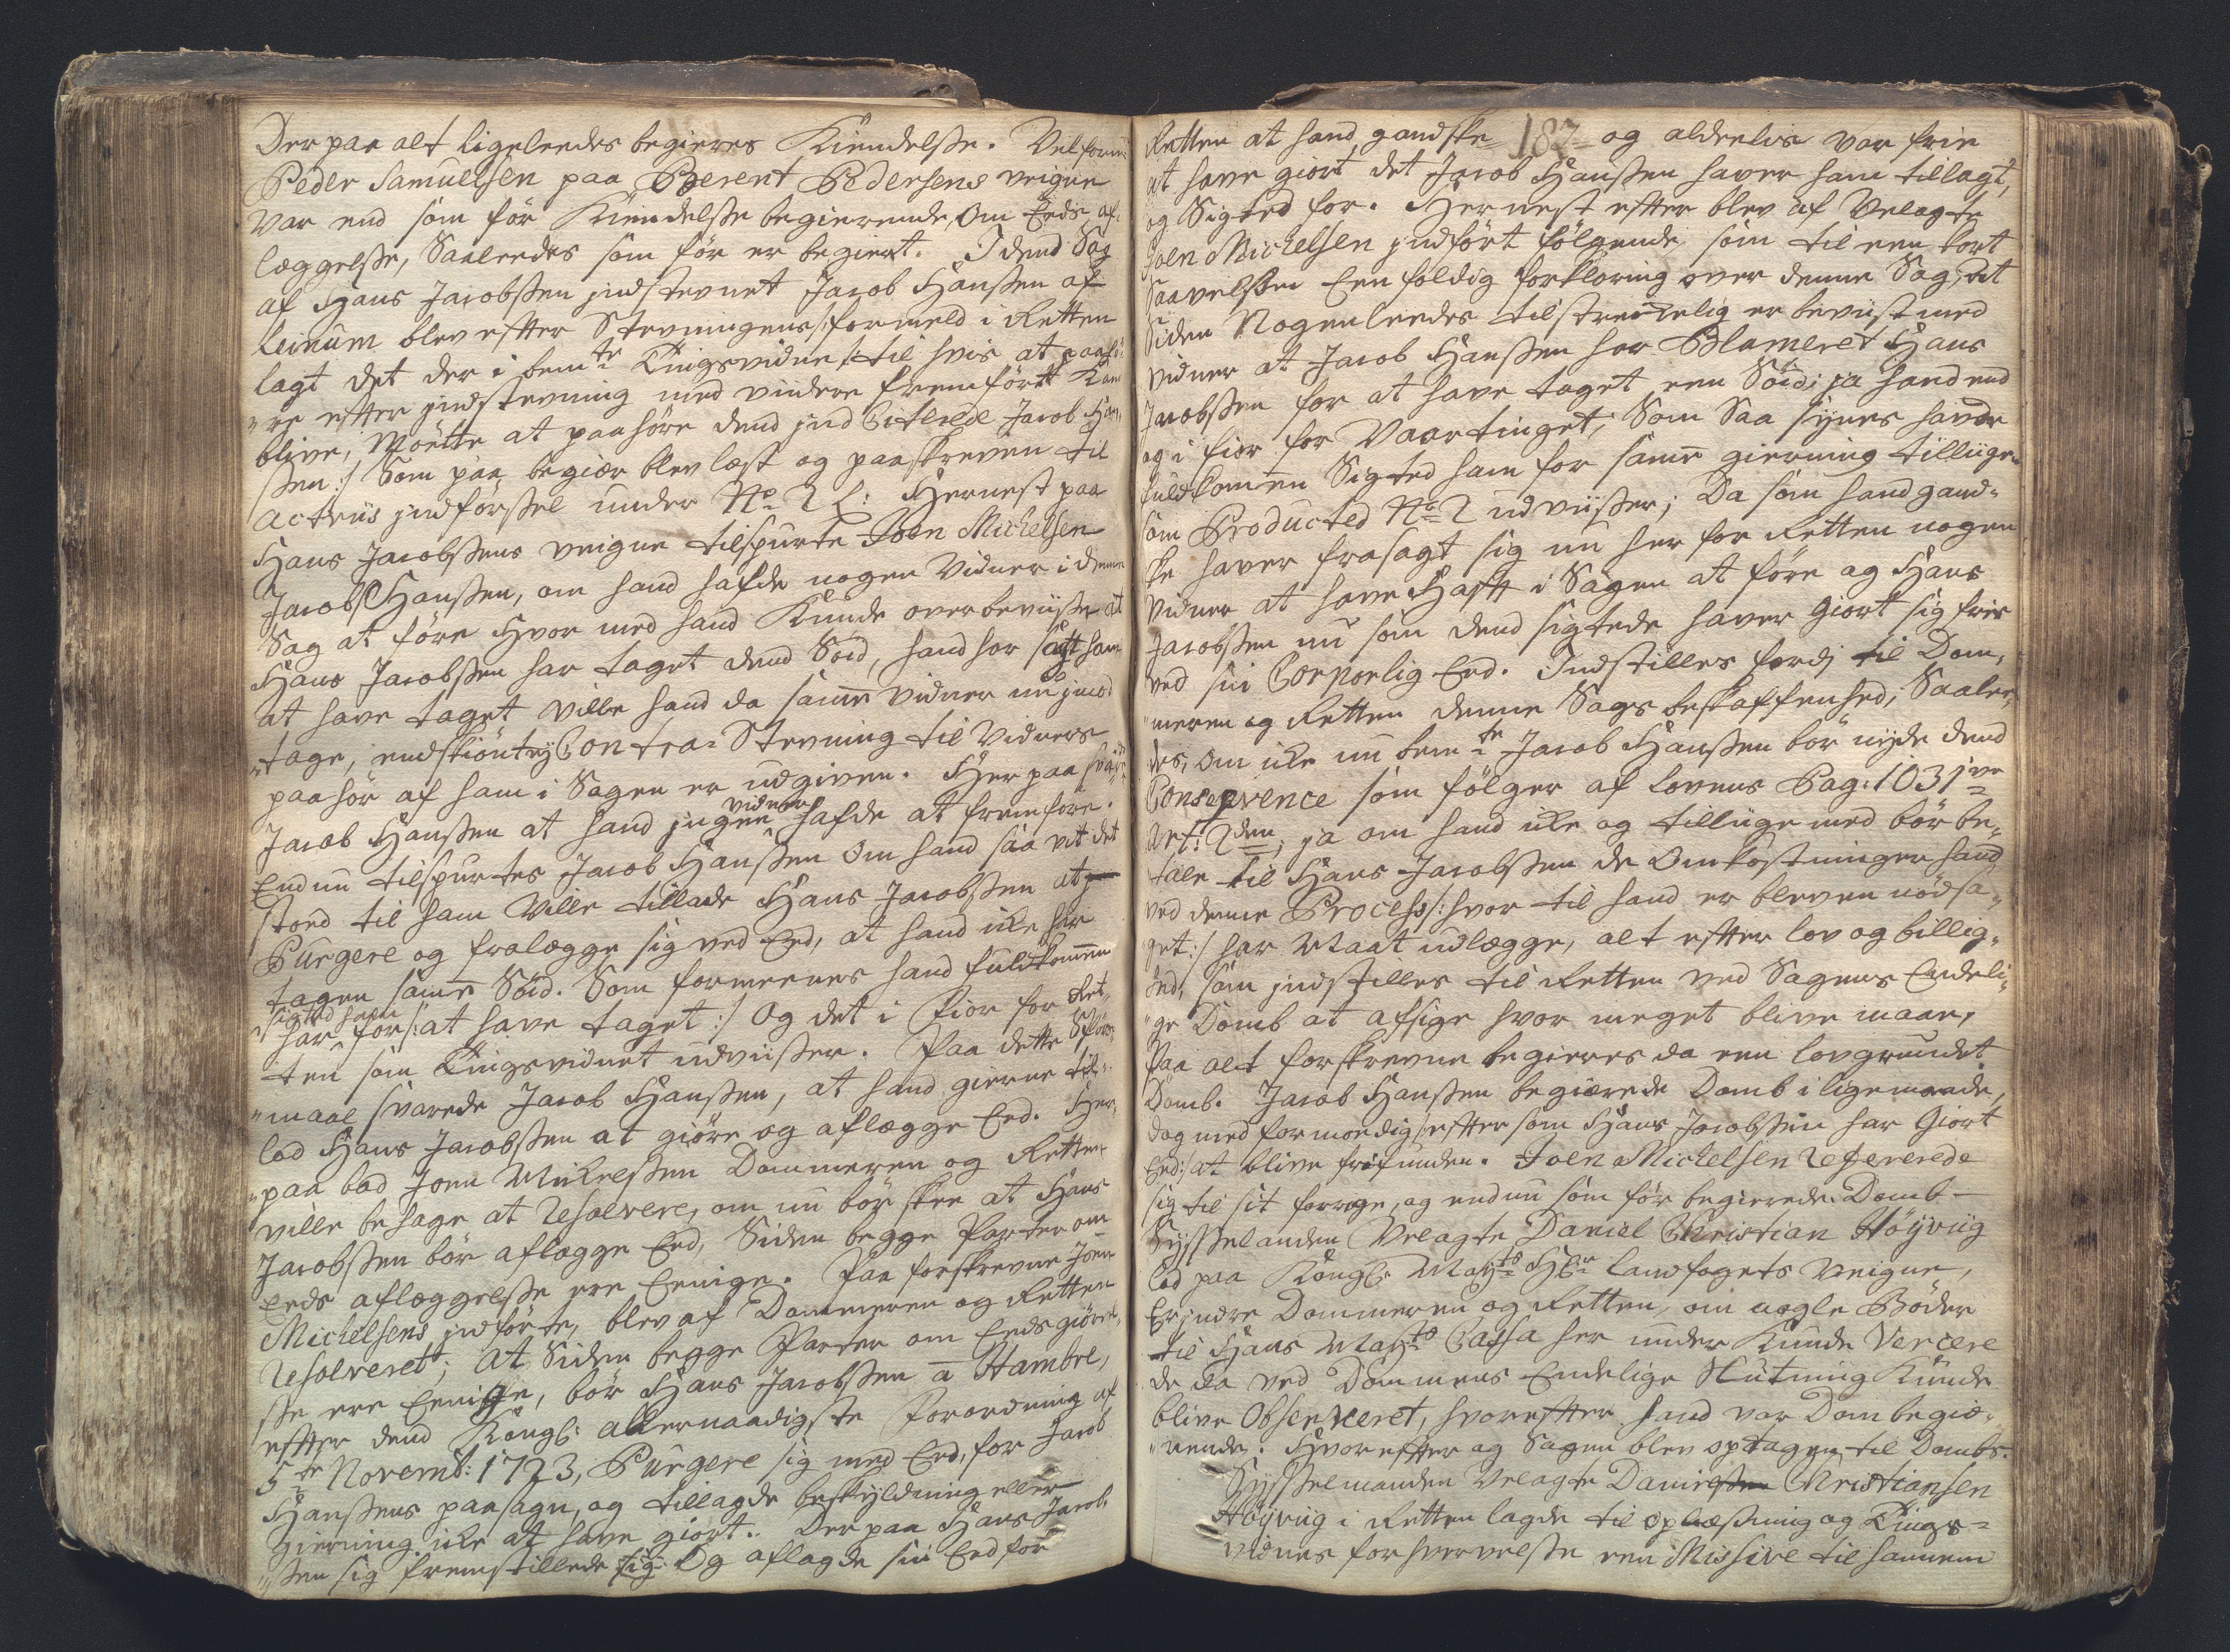 Der paa alt ligeleedes begieres Kiendelsse. Velforn:
Peder Samuelsen paa Berent Pedersens veigne
var end som før Kiendelsse begierende om Eeds af¬
læggelsse, Saaleedes som før er begiert. I dend Sag
af Hans Jacobssen indstevnet Jacob Hanssen af
Leinum blev efter Stevningens formeld i Retten
lagt det der i bemte Tingsvidne /: til hvis at paahø
"re efter indstevning med vindere fremført Kand
blive, Møtte at paahøre dend ind Citerede Jacob Han¬
ssen :/ Som paa begier blev læst og paaskreven til
Acteus indførssel under No 2 L: Hernest paa
Hans Jacobssens veigne tilspurte Joen Michelsen
Jacob Hanssen, om hand hafde nogen Vidner i denne
Sag at føre Hvor med hand Kunde overbeviisse at
Hans Jacobssen har taget dend Soid, hand har sagt ham
at have taget ville hand da samme vidner nu ind
"tage, endskiønt ej Contra-Stevning til Vidners
paahør af ham i Sagen er udgiven. Her paa svarede
Jacob Hanssen at hand ingen vidner hafde at fremføre.
Endnu tilspurtes Jacob Hanssen om hand saa vit det
stoed til ham Ville tillade Hans Jacobssen at
Purgere og fralægge sig ved Eed, at hand icke har
tagen samme Soid. Som formeenes hand fuldkommen
har sigted ham for /: at have taget :/ Og det i Fior for Ret¬
ten som Tingsvidnet udviisser. Paa dette Spørs
"maal svarede Jacob Hanssen, at hand gierne til¬
lod Hans Jacobssen at giøre og aflægge Eed. Her
"paa bad Joen Mickelssen Dommeren og Retten
ville behage at Resolvere, om nu bør skee at Hans
Jacobssen bør aflægge Eed, Siden begge Parter om
Eeds aflæggelsse ere Eenige. Paa forskrevne Joen
Michelsens indførte, blev af Dommeren og Retten
Resolverett; At Siden begge Parter om Eeds giørel¬
sse ere Eenige, bør Hans Jacobssen a Hambre,
efter dend Kongl: allernaadigste Forordning af
5te Novemb: 1723, Purgere sig med Eed, for Jacob
Hanssens paasagn, og tillagde beskyldning eller
gierning icke at have giort. Der paa Hans Jacob¬
"ssen sig fremstillede sig Og aflagde sin Eed for
Retten at hand gandske 182 og aldeeles var frie
at have giort det Jacob Hanssen haver ham tillagt,
og Sigted for. Hernest efter blev af Velagte
Joen Michelsen indført følgende som til een kort
saavelssom Eenfoldig forklaring over denne Sag; At
Siden Nogenleedes tilstreckelig er beviist med
vidner at Jacob Hanssen har Blameret Hans
Jacobssen for at have taget een Soid; ja hand end
og i fior for Vaartinget; Som Saa synes havde
fuldkommen Sigted ham for samme gierning tillige
som Producted No 2 udviisser; Da som hand gand¬
ske haver frasagt sig nu her for Retten nogen
Vidner at have Haft i Sagen at føre og Hans
Jacobssen nu som dend sigtede haver Giort sig frie
ved sin Corporlig Eed. Indstilles fordj til Dom¬
"meren og Retten denne Sags beskaffenhed; Saalee¬
des, om icke nu bemte Jacob Hanssen bør nyde dend
Conseqvence som følger af Lovens Pag: 1031ve
Art: 2den, ja om hand icke og tillige med bør be¬
tale til Hans Jacobssen de Omkostninger hand
ved denne Process /: hvor til hand er bleven nødsa¬
get :/ har Maat udlægge, alt efter lov og billig¬
hed, som indstilles til Retten ved Sagens Endeli¬
"ge Domb at afsige hvor meget blive maae,
Paa alt forskrevne begieres da een lovgrundet
Domb. Jacob Hanssen begierede Domb i ligemaade,
dog med formoending /: efter som Hans Jacobssen har Giort
Eed :/ at blive frifunden. Joen Michelsen Refererede
sig til sit forrige, og endnu som før begierede Domb -
Sysselmanden Velagte Daniel Christian Høyviig
lod paa Kongl: Mayts Hr landfogets Veigne,
Erindre Dommeren og Retten, om nogle Bøder
til Hans Mayts Cassa her under Kunde Vercere
de da ved Dommens Endelige Slutning Kunde
blive Observeret, hvorefter hand var Dom begie¬
"rende. Hvorefter og Sagen blev optagen til Dombs.
Sysselmanden Velagte Danielssen Christiansen
Høyviig i Retten lagde til oplæsning og Tings=
vidnes forhvervelsse een Missive til hannem